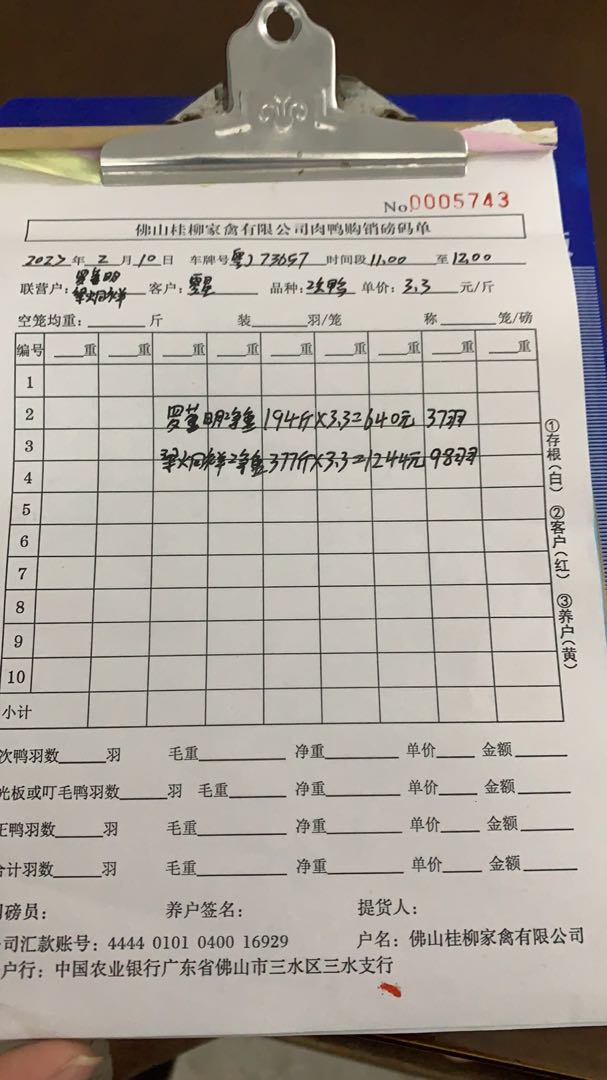 No 0005743
佛山桂柳家禽有限公司肉鸭购销磅码单
2023年 2 月 10 日 车牌号 粤J73657 时间段 11.00 至 12.00
联营户: 客户: 品种: 次鸭 单价: 3.3 元/斤
空笼均重: 斤 装 羽/笼 称 笼/磅
编号 重 重 重 重 重 重 重 重 重
1
2
净重 194斤×3.3=640元 37羽
3
净重 377斤×3.3=1244元 98羽
4
5
6
7
8
9
10
小计
①存根(白) ②客户(红) ③养户(黄)
次鸭羽数 羽 毛重 净重 单价 金额
光板或叮毛鸭羽数 羽 毛重 净重 单价 金额
正鸭羽数 羽 毛重 净重 单价 金额
合计羽数 羽 毛重 净重 单价 金额
磅员: 养户签名: 提货人:
司汇款账号: 4444 0101 0400 16929 户名: 佛山桂柳家禽有限公司
户行: 中国农业银行广东省佛山市三水区三水支行